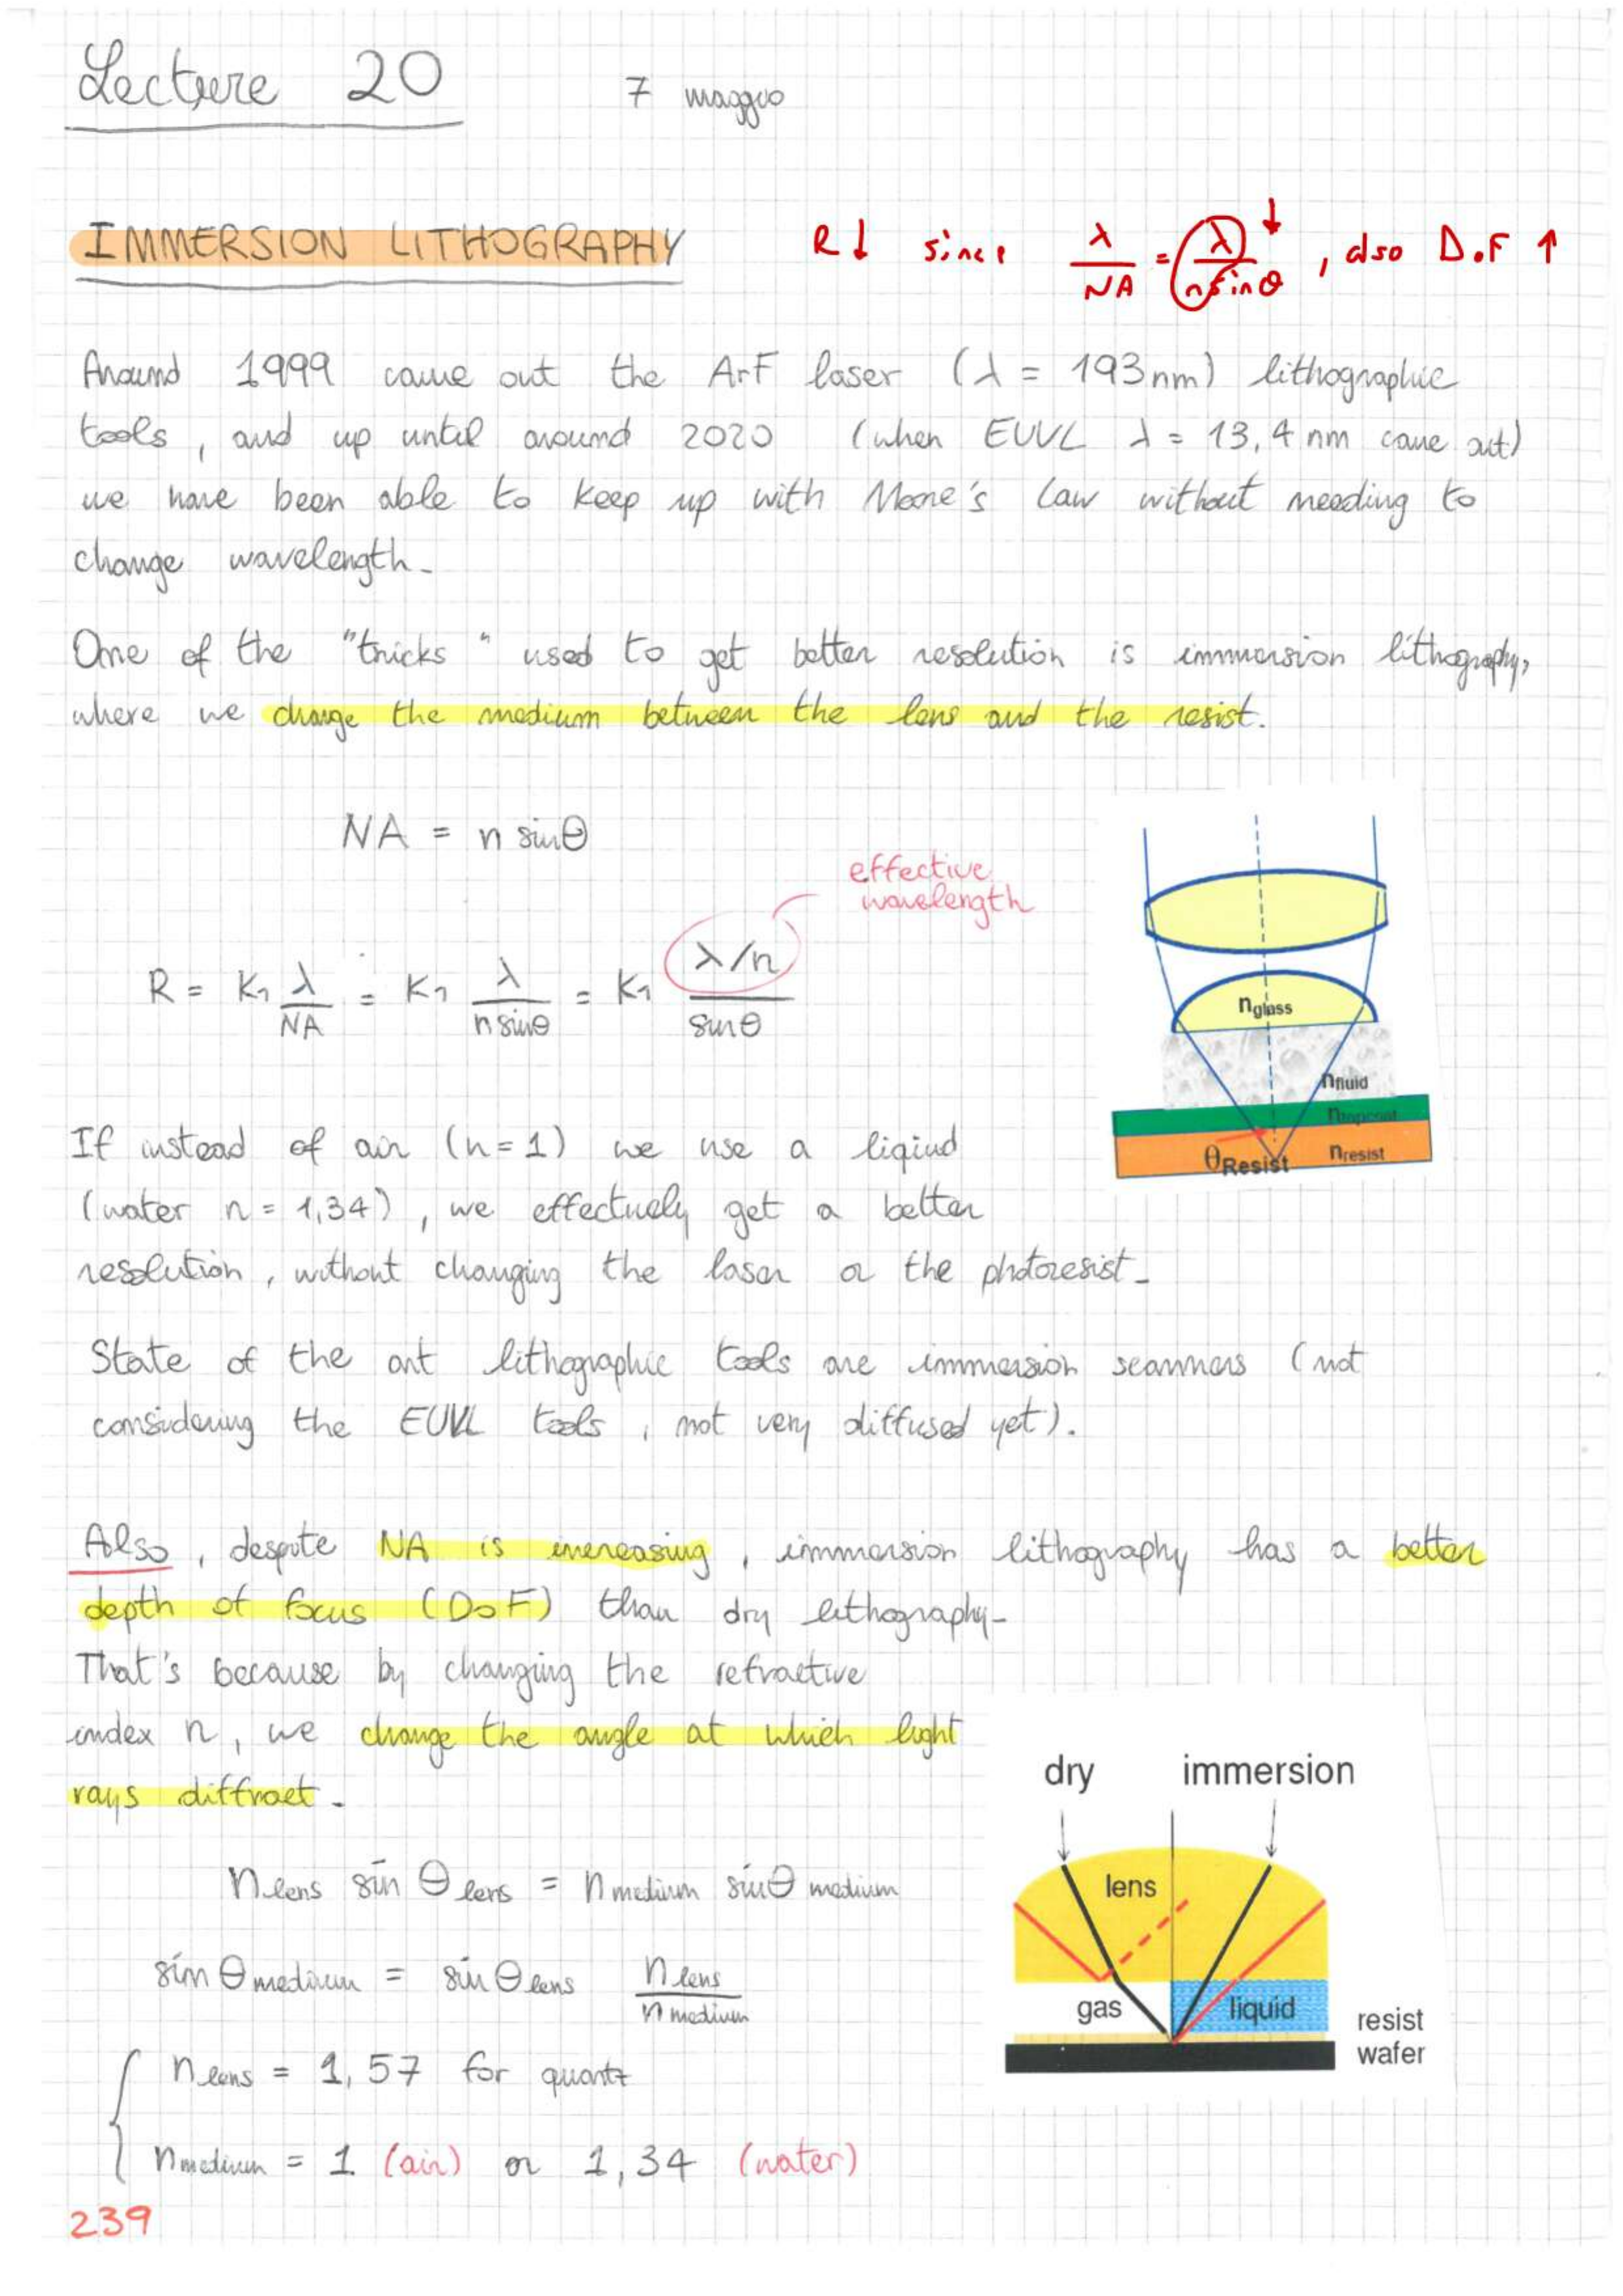 Lecture 20 7 maggio
IMMERSION LITHOGRAPHY R↓ since λ/NA = λ/(n sinθ) ↓, also D.o.F ↑
Around 1999 came out the ArF laser (λ = 193 nm) lithographic
tools, and up until around 2020 (when EUVL λ = 13,4 nm came out)
we have been able to keep up with Moore's law without needing to
change wavelength.
One of the "tricks" used to get better resolution is immersion lithography,
where we change the medium between the lens and the resist.
NA = n sinθ
effective
wavelength
R = K₁ λ/NA = K₁ λ/(n sinθ) = K₁ (λ/n)/sinθ
nglass
nfluid
ntopcoat
θResist nresist
If instead of air (n=1) we use a liqiud
(water n = 1,34), we effectively get a better
resolution, without changing the laser or the photoresist.
State of the art lithographic tools are immersion scanners (not
considering the EUVL tools, not very diffused yet).
Also, despite NA is increasing, immersion lithography has a better
depth of focus (DoF) than dry lithography.
That's because by changing the refractive
index n, we change the angle at which light
rays diffract.
dry immersion
lens
gas liquid
resist
wafer
n lens sin θ lens = n medium sinθ medium
sin θ medium = sin θ lens n lens / n medium
n lens = 1,57 for quartz
n medium = 1 (air) or 1,34 (water)
239